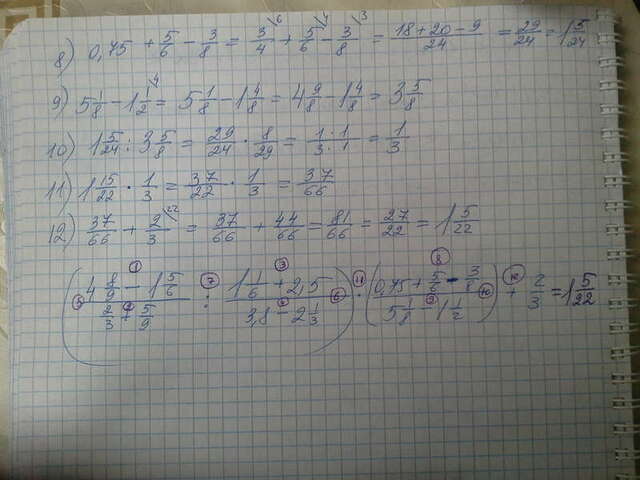 8) 0,75 + 5/6 - 3/8 = 3/4 \6 + 5/6 \4 - 3/8 \3 = 18+20-9/24 = 29/24 = 1 5/24
9) 5 1/8 - 1 1/2 \4 = 5 1/8 - 1 4/8 = 4 9/8 - 1 4/8 = 3 5/8
10) 1 5/24 : 3 5/8 = 29/24 · 8/29 = 1·1/3·1 = 1/3
11) 1 15/22 · 1/3 = 37/22 · 1/3 = 37/66
12) 37/66 + 2/3 \22 = 37/66 + 44/66 = 81/66 = 27/22 = 1 5/22
(4 8/9 - 1 5/6 / 2/3 + 5/9 : 1 1/6 + 2,5 / 3,8 - 2 1/3) · (0,75 + 5/6 - 3/8 / 5 1/8 - 1 1/2) + 2/3 = 1 5/22